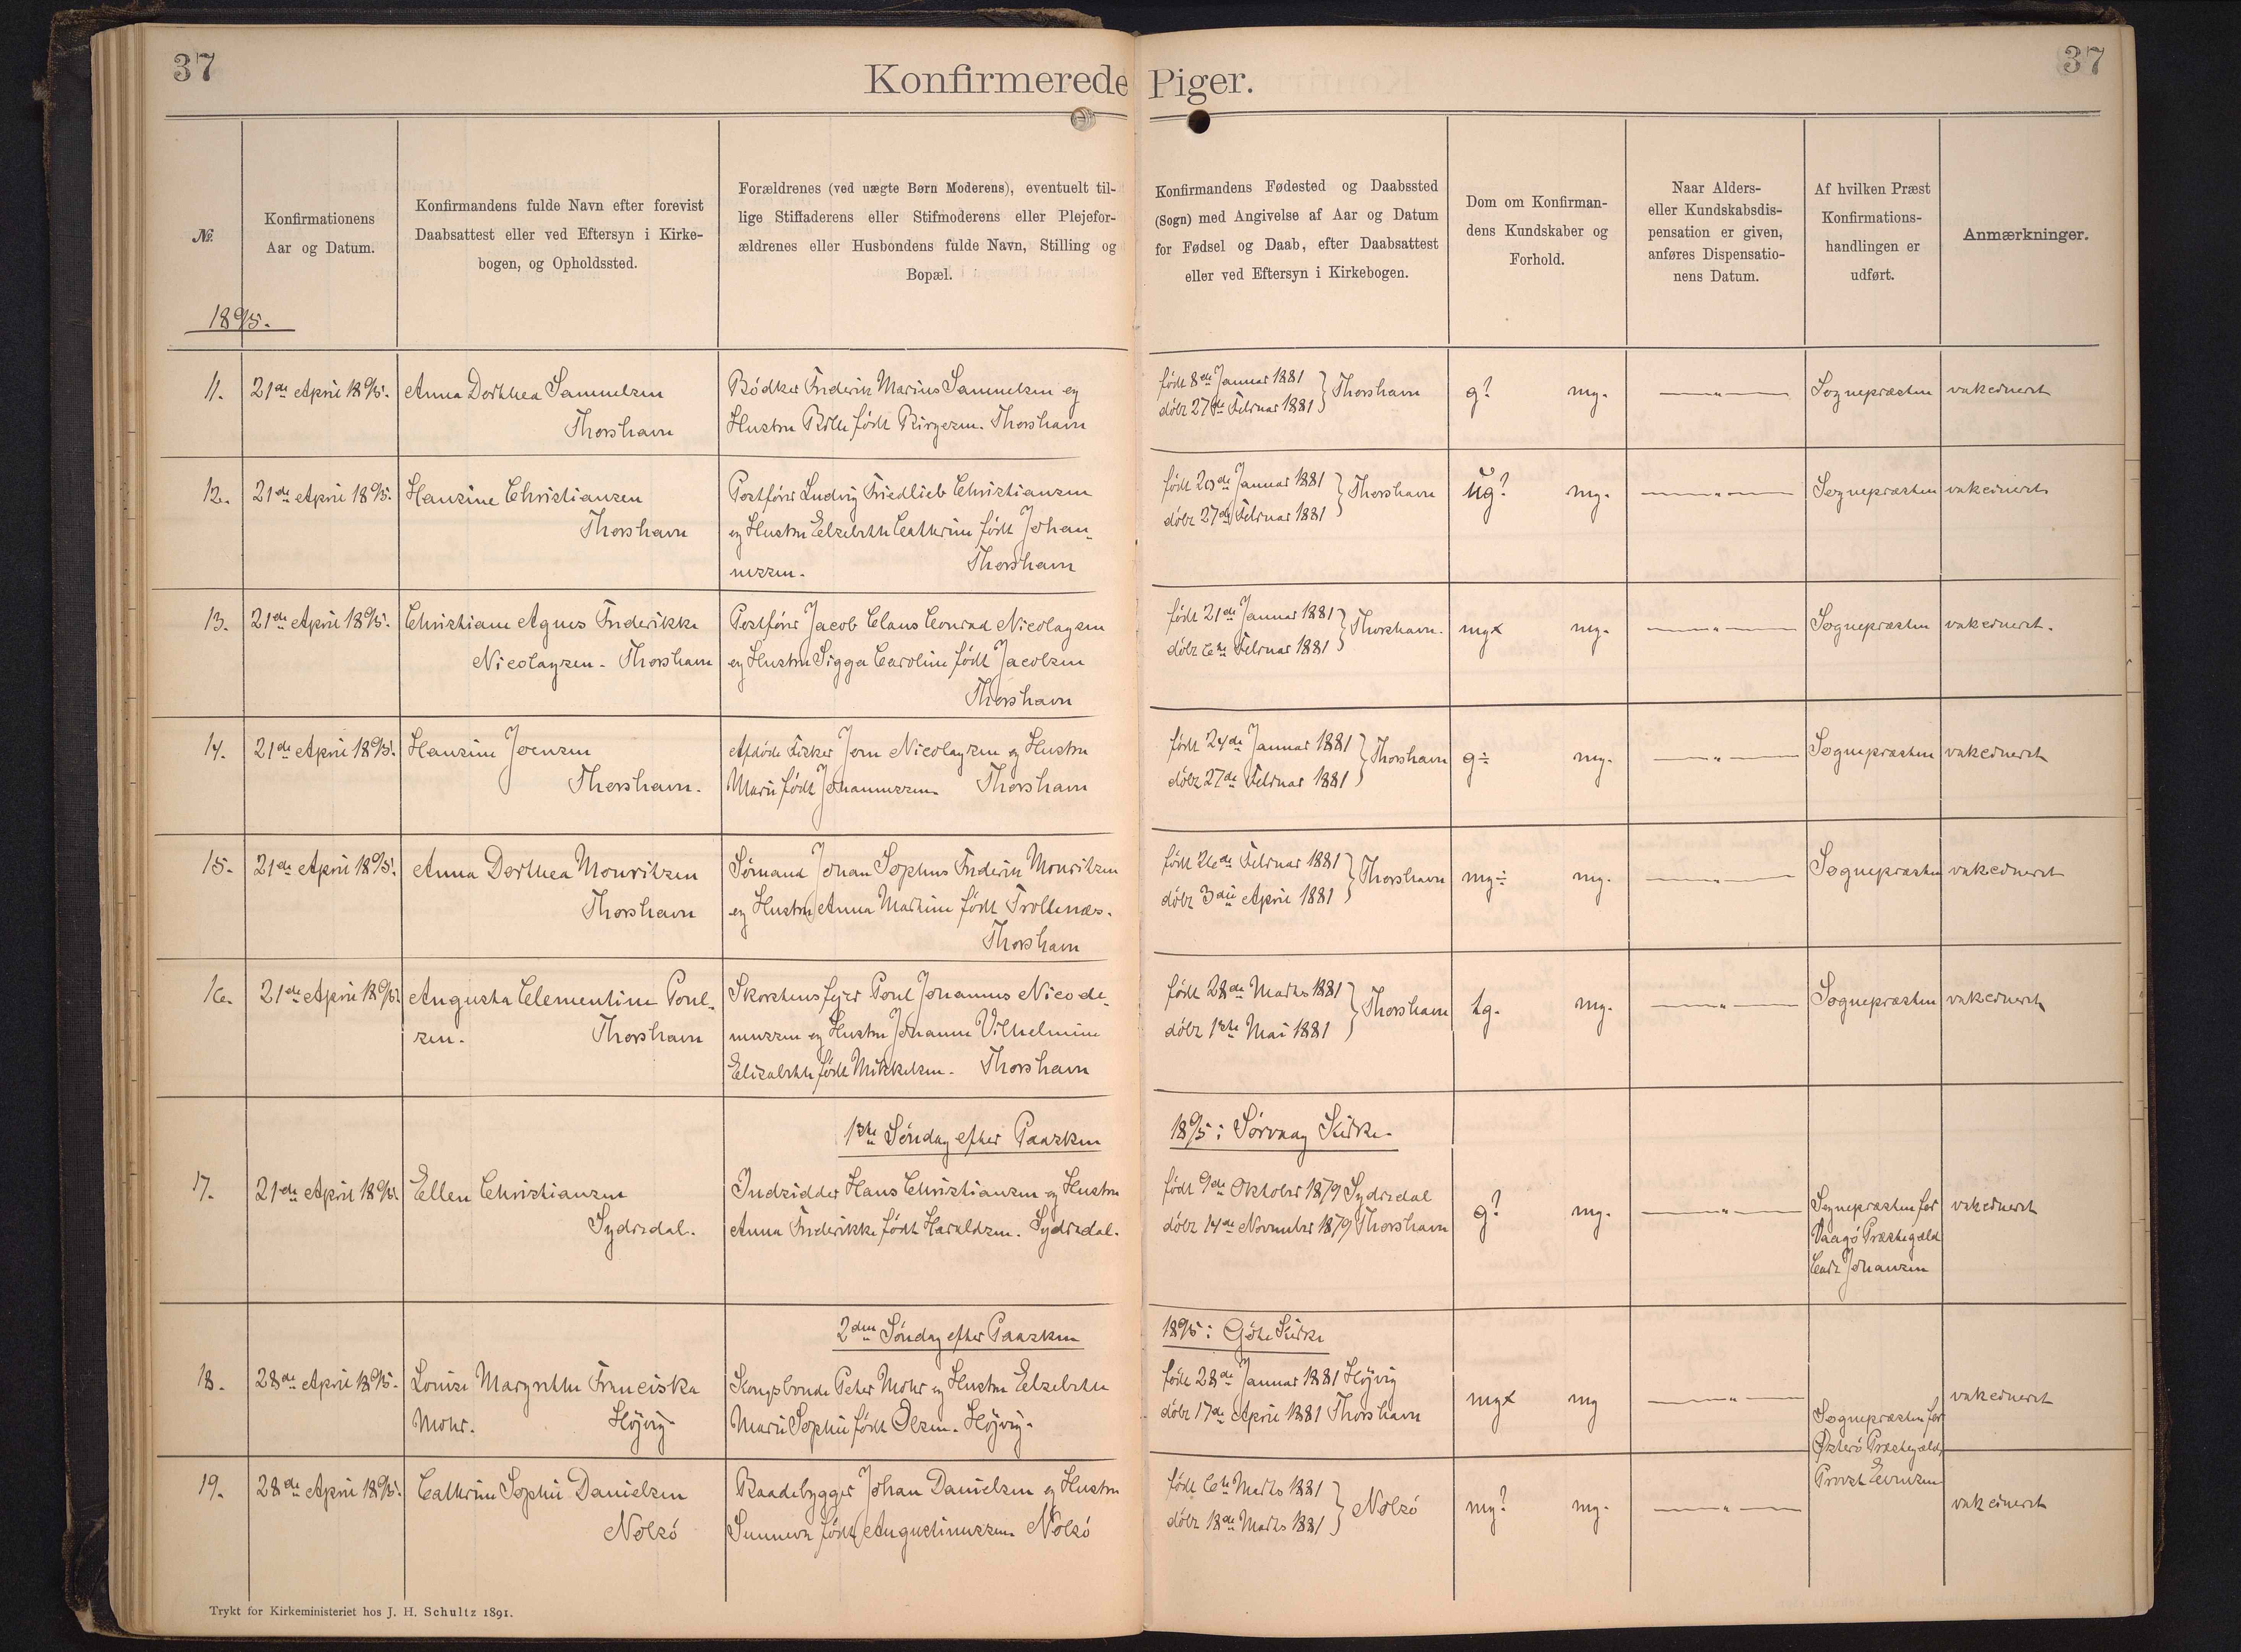 37
37
Konfirmerede Piger.
№.
Konfirmationens
Aar og Datum.
Konfirmandens fulde Navn efter forevist
Daabsattest eller ved Eftersyn i Kirke-
bogen, og Opholdssted.
Forældrenes (ved uægte Børn Moderens), eventuelt til-
lige Stiffaderens eller Stifmoderens eller Plejefor-
ældrenes eller Husbondens fulde Navn, Stilling og
Bopæl.
Konfirmandens Fødested og Daabssted
(Sogn) med Angivelse af Aar og Datum
for Fødsel og Daab, efter Daabsattest
eller ved Eftersyn i Kirkebogen.
Dom om Konfirman-
dens Kundskaber og
Forhold.
Naar Alders-
eller Kundskabsdis-
pensation er given,
anføres Dispensatio-
nens Datum.
Af hvilken Præst
Konfirmations-
handlingen er
udført.
Anmærkninger.
1895.
11.
21de April 1895.
Anna Dorthea Samuelsen
Thorshavn
Bødker Frederik Marius Samuelsen og
Hustru født Birgersen. Thorshavn
født 8de Januar 1881
døbt 27de Februar 1881 } Thorshavn
g?
mg.
— " —
Sognepræsten
vakcineret
12.
21de April 1895.
Hansine Christiansen
Thorshavn
Postfører Ludvig Friedlieb Christiansen
og Hustru Elsebeth Cathrine født Johan-
nessen. Thorshavn
født 20de Januar 1881
døbt 27de Februar 1881 } Thorshavn
ug?
mg.
— " —
Sognepræsten
vakcineret
13.
21de April 1895.
Christiane Agnes Frederikke
Nicolaysen. Thorshavn
Postfører Jacob Claus Conrad Nicolaysen
og Hustru Sigga Caroline født Jacobsen
Thorshavn
født 21de Januar 1881
døbt 6te Februar 1881 } Thorshavn.
mgx
mg.
— " —
Sognepræsten
vakcineret.
14.
21de April 1895.
Hansine Joensen
Thorshavn.
Afdøde Fisker Joen Nicolaysen og Hustru
Marie født Johannessen. Thorshavn
født 24de Januar 1881
døbt 27de Februar 1881 } Thorshavn
g÷
mg.
— " —
Sognepræsten
vakcineret
15.
21de April 1895.
Anna Dorthea Mouritzen
Thorshavn
Sømand Johan Sophus Frederik Mouritzen
og Hustru Anna Mathine født Trollenæs.
Thorshavn
født 26de Februar 1881
døbt 3die April 1881 } Thorshavn
mg÷
mg.
— " —
Sognepræsten
vakcineret
16.
21de April 1895
Augusta Clementine Poul-
sen. Thorshavn
Skorstensfejer Poul Johannes Nicode-
mussen og Hustru Johanne Vilhelmine
Elisabeth født Mikkelsen. Thorshavn
født 28de Marts 1881
døbt 1ste Mai 1881 } Thorshavn
tg.
mg.
— " —
Sognepræsten
vakcineret
1ste Søndag efter Paasken
1895: Sørvaag Kirke.
17.
21de April 1895.
Ellen Christiansen
Sydredal.
Indsidder Hans Christiansen og Hustru
Anna Frederikke født Haraldsen. Sydredal.
født 9de Oktober 1879 Sydredal
døbt 14de November 1879 Thorshavn
g?
mg.
— " —
Sognepræsten for
Vaagø Præstegæld
Johansen
vakcineret
2den Søndag efter Paasken
1895: Göte Kirke
18.
28de April 1895.
Louise Margrethe Franciska
Mohr. Højvig
Kongsbonde Peter Mohr og Hustru Elsebeth
Marie Sophie født Olsen. Højvig.
født 28de Januar 1881 Højvig
døbt 17de April 1881 Thorshavn
mgx
mg
— " —
Sognepræsten for
Østerø Præstegæld
Provst Evensen
vakcineret
19.
28de April 1895.
Cathrine Sophie Danielsen
Nolsø
Baadebygger Johan Danielsen og Hustru
Sunneva født Augustinussen Nolsø
født 6te Marts 1881
døbt 18de Marts 1881 } Nolsø
mg?
mg.
— " —
vakcineret
Trykt for Kirkeministeriet hos J. H. Schultz 1891.